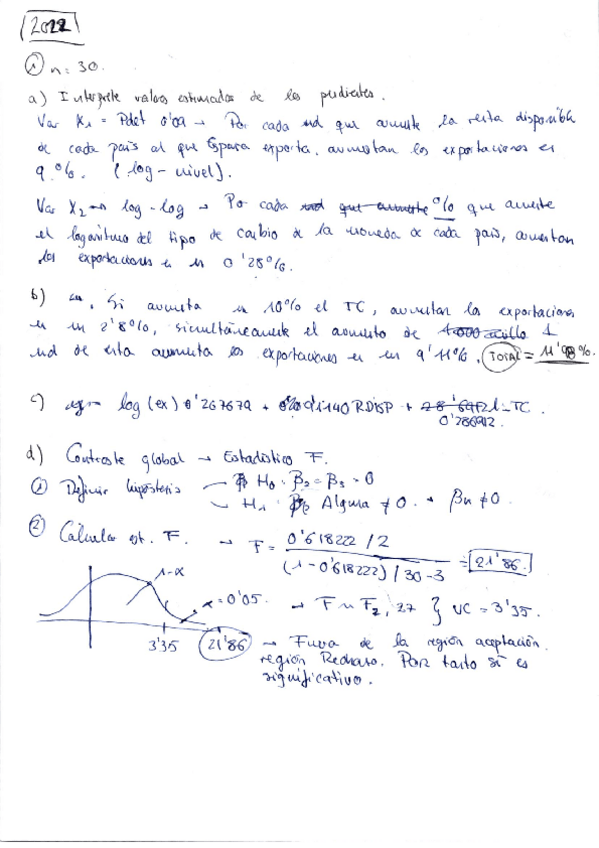 2022
① n = 30.
a) Interprete valores estimados de las pendientes.
Var X₁ = Pdet 0'09 → Por cada ud que aumente la renta disponible
de cada país al que España exporta, aumentan las exportaciones en
9 %. (log-nivel).
Var X₂ → log-log → Por cada ud que aumente % que aumente
el logaritmo del tipo de cambio de la moneda de cada país, aumentan
las exportaciones en un 0'28%.
b) Si aumenta un 10% el TC, aumentan las exportaciones
en un 2'8%, simultáneamente el aumento de 1
ud de renta aumenta las exportaciones en un 9'11%. TOTAL = 11'98%.
c) log(ex) 0'267679 + 0'091140 RDISP + L-TC.
0'286912
d) Contraste global → Estadístico F.
① Definir hipótesis H₀: β₂ = β₃ = 0
H₁: Alguna ≠ 0. βk ≠ 0.
② Calcular est. F. → F = 0'618222 / 2
(1 - 0'618222) / 30-3 = 21'86.
1-α
α = 0'05. → F ~ F₂, 27 } VC = 3'35.
3'35 21'86 → Fuera de la región aceptación.
región Rechazo. Por tanto sí es
significativo.